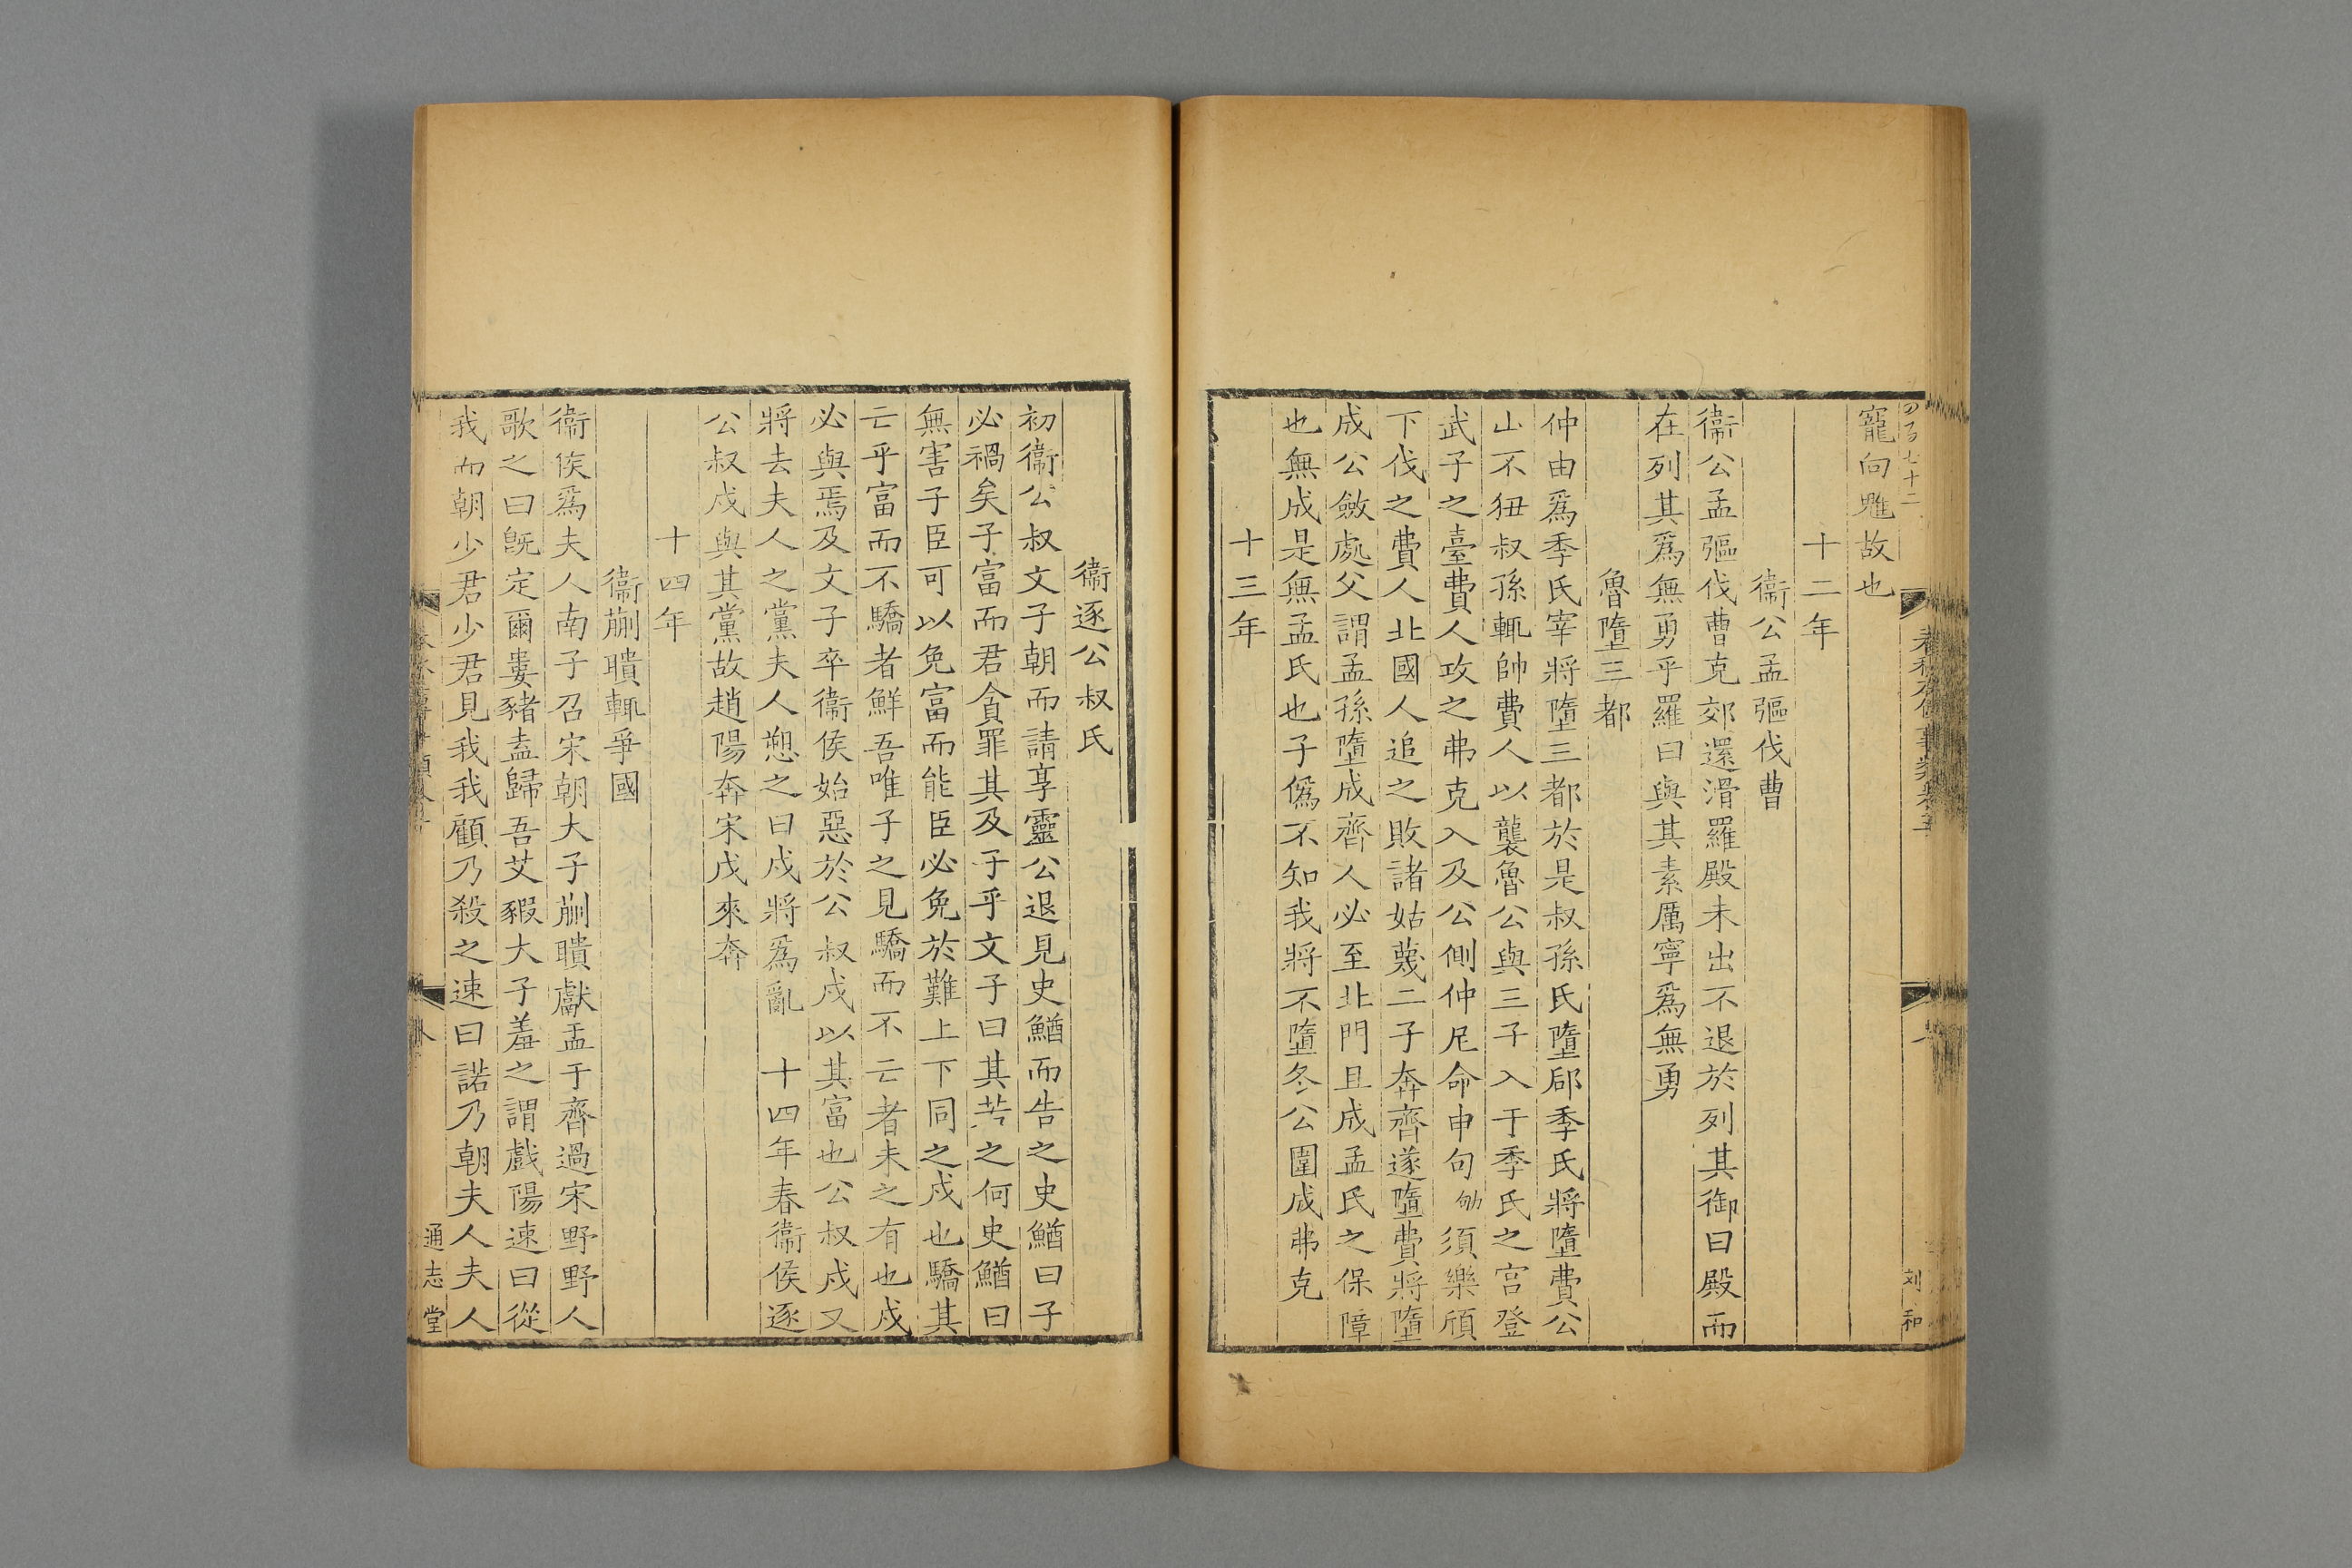 寵向魋故也
十二年
衞公孟彄伐曹
衞公孟彄伐曹克郊還滑羅殿未出不退於列其御曰殿而
在列其爲無勇乎羅曰與其素厲寧爲無勇
魯墮三都
仲由爲季氏宰將墮三都於是叔孫氏墮郈季氏將墮費公
山不狃叔孫輒帥費人以襲魯公與三子入于季氏之宫登
武子之臺費人攻之弗克入及公側仲尼命申句須樂頎
下伐之費人北國人追之敗諸姑蔑二子奔齊遂墮費將墮
成公斂處父謂孟孫墮成齊人必至北門且成孟氏之保障
也無成是無孟氏也子僞不知我將不墮冬公圍成弗克
十三年
衞逐公叔氏
初衞公叔文子朝而請享靈公退見史鰌而告之史鰌曰子
必禍矣子富而君貪罪其及子乎文子曰其若之何史鰌曰
無害子臣可以免富而能臣必免於難上下同之戍也驕其
亡乎富而不驕者鮮吾唯子之見驕而不亡者未之有也戍
必與焉及文子卒衞侯始惡於公叔戍以其富也公叔戍又
將去夫人之黨夫人愬之曰戍將爲亂 十四年春衞侯逐
公叔戍與其黨故趙陽奔宋戍來奔
十四年
衞蒯聵輒爭國
衞侯爲夫人南子召宋朝大子蒯聵獻盂于齊過宋野野人
歌之曰旣定爾婁豬盍歸吾艾豭大子羞之謂戲陽速曰從
我而朝少君少君見我我顧乃殺之速曰諾乃朝夫人夫人
通志堂